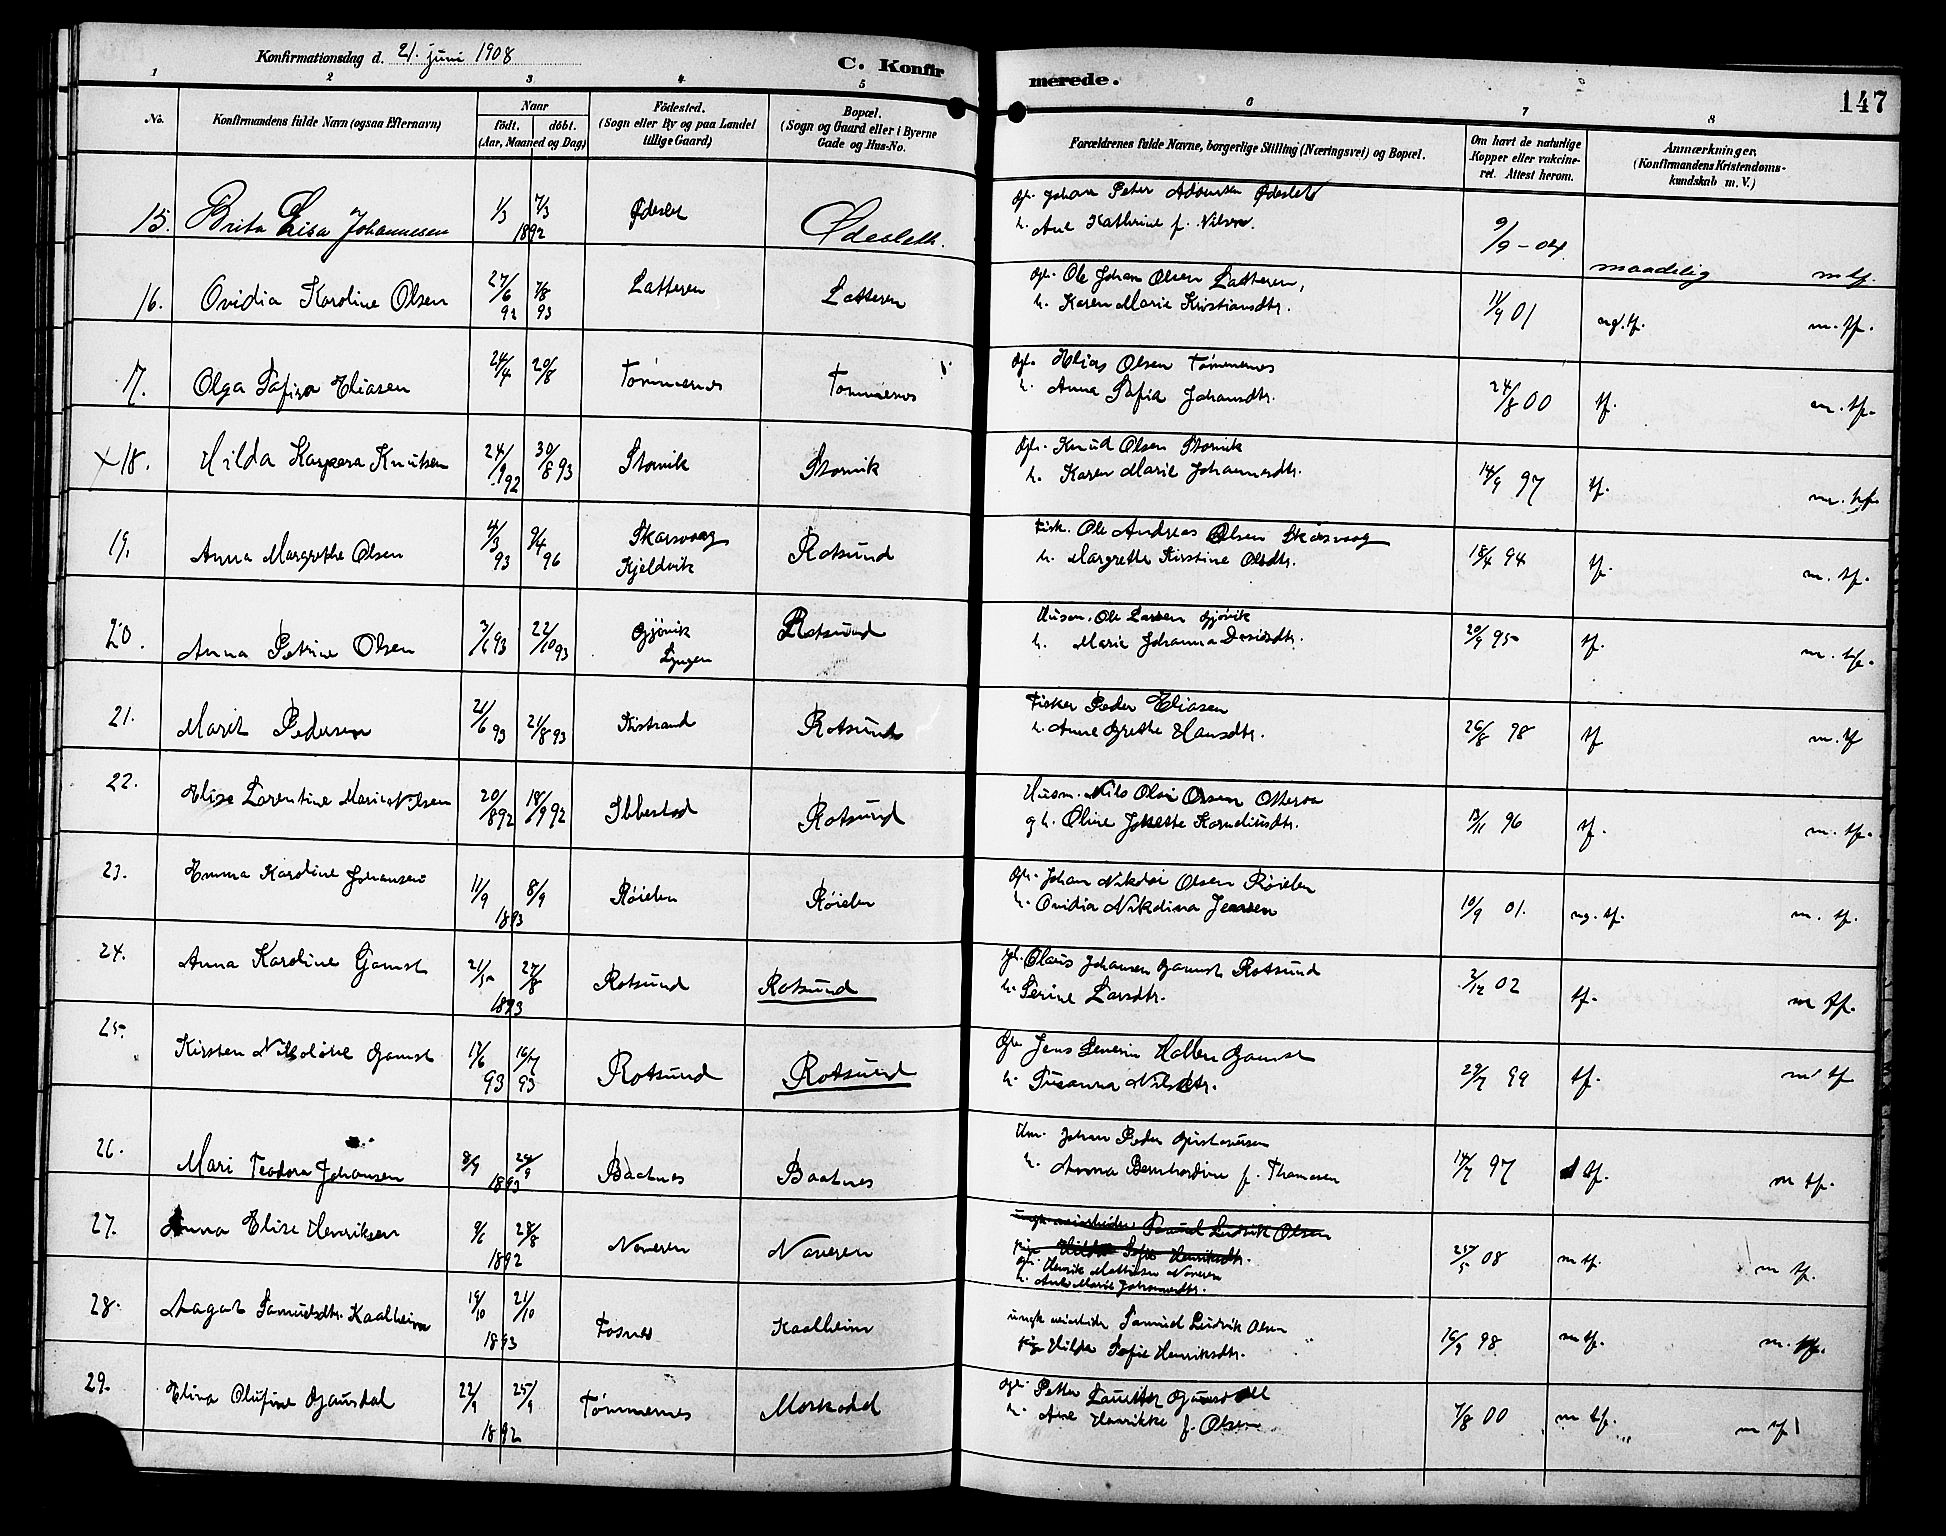 Konfirmationsdag d. 21. juni 1908
C. Konfirmerede.
147
1 2 3 4 5 6 7 8
No.
Konfirmandens fulde Navn (ogsaa Efternavn)
Naar
födt. döbt.
(Aar, Maaned og Dag)
Födested.
(Sogn eller By og paa Landet
tillige Gaard)
Bopæl.
(Sogn og Gaard eller i Byerne
Gade og Hus-No.
Forældrenes fulde Navne, borgerlige Stilling (Næringsvei) og Bopæl.
Om havt de naturlige
Kopper eller vakcine-
ret. Attest herom.
Anmærkninger,
(Konfirmandens Kristendoms-
kundskab m. V.)
15. Brita Lisa Johannesen 1/3 7/3 1892 Ødeslet Ødesleth.
gh. Johan Peter Ødeslet
h. Ane Kathrine f. Nilsen. 9/9-04 maadelig m tf.
16. Ovidia Karoline Olsen 27/6 92 7/8 93 Latteren Latteren
gh. Ole Johan Olsen Latteren,
h. Karen Marie Kristiansdtr. 11/9 01 ng. tf. m. tf.
17. Olga Safira Eliasen 24/4 20/8 Tømmernes Tømmernes
gh. Elias Olsen Tømmernes
h. Anna Sofia Johansdtr. 24/8 00 tf. m. tf.
x 18. Hilda Kaspara Knutsen 24/9 92 30/8 93 Storvik Storvik
gh. Knud Olsen Storvik
h. Karen Marie Johannesdtr. 14/9 97 tf. m. tf.
19. Anna Margrethe Olsen 4/3 93 9/4 96 Skarsvaag
Kjeldvik Rotsund
Fisk. Ole Andreas Olsen Skarsvaag
h. Margrethe Kirstine Olsdtr. 18/4 94 tf. m. tf.
20. Anna Petrine Olsen 3/6 93 22/10 93 Gjövik
Lyngen Rotsund
Husm. Ole Larsen Gjövik
h. Marie Johanna Davidsdtr. 20/9 95 tf. m. tf.
21. Marit Pedersen 21/6 93 21/8 93 Kistrand Rotsund
Fisker Peder Eliasen
h. Anne Grethe Hansdtr. 26/8 98 tf m. tf
22. Elise Larentine Marie Nilsen 20/8 92 18/9 92 Ibbestad Rotsund
Husm. Nils Olai Olsen
g h. Oline Josette Korneliusdtr. 96 tf. m. tf.
23. Emma Karoline Johansen 11/9 8/9 1893 Røielen Røielen
gh. Johan Nikolai Olsen Røielen
h. Ovidia Nikolina Jensen 10/9 01. ng. tf. m. tf.
24. Anna Karoline Gamst 21/5 27/8 1893 Rotsund Rotsund
gh. Olaus Johansen Gamst Rotsund
h. Serine Larsdtr. 2/12 02 tf. m tf.
25. Kirsten Nikoline Gamst 17/6 93 16/7 93 Rotsund Rotsund
gh. Jens Severin Hallen Gamst
h. Susanna Nilsdtr. 29/7 99 tf. m tf
26. Mari Teodora Johansen 8/9 24/9 1893 Baatnes Baatnes
Hm. Johan Peder
h. Anna Bernhardine f. Thomasen 14/7 97 tf. m tf.
27. Anna Elise Henriksen 9/6 28/8 1892 Naveren Naveren
Samuel Ludvik Olsen
Hilda Sofie Henriksdtr.
gh. Henrik Mathisen Naveren
h. Ane Marie Johannesdtr. 25/5 08 m tf. m tf.
28. Aagot Samuelsdtr. Kaalheim 19/10 21/10 1893 Fosnes Kaalheim
ungk. Samuel Ludvik Olsen
pige Hilda Sofie Henriksdtr. 16/9 98 m tf. m. tf.
29. Elina Olufine Gausdal 22/9 25/9 1892 Tømmernes Morkodal
gh. Petter Gausdal
h. Ane Henrikke f. Olsen 7/8 00 m tf. m tf